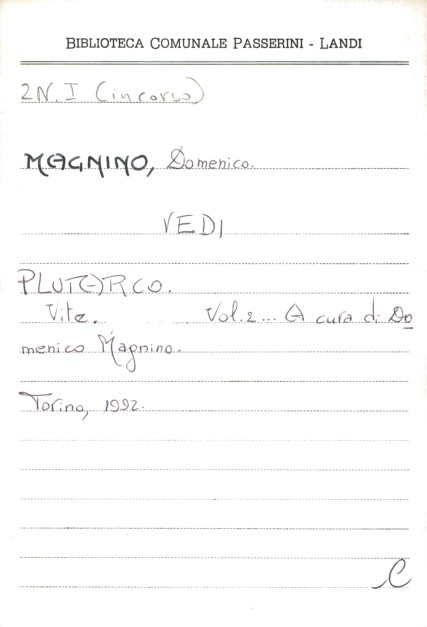 BIBLIOTECA COMUNALE PASSERINI - LANDI
2N.I (in corso)
MAGNINO, Domenico.
VEDI
PLUTARCO.
Vite. Vol.2... A cura di Do
menico Magnino.
Torino, 1992.
C